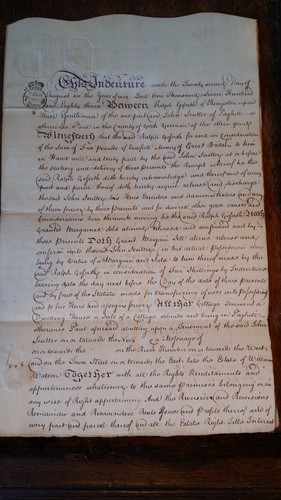 This Indenture made the Twenty second Day of
August in the Year of our Lord One Thousand Seven Hundred
and Eighty three Between Ralph Goforth of
Gentleman of the one part and John Soulter of
otherwise Paul in the County of York Yeoman of the other Part
Witnesseth that the said Ralph Goforth for and in Consideration
of the Sum of Five pounds of lawfull Money of Great Britain to him
in Hand well and truly paid by the said John Soulter at or before
the sealing and delivery of these presents the Receipt whereof he the
said Ralph Goforth doth hereby acknowledge and thereof and of every
part and parcel thereof doth hereby acquit release and discharge
the said John Soulter, his Heirs Executors and administrators and every
of them forever by these presents and for divers other good causes and
Considerations him thereunto moving he the said Ralph Goforth Hath
Granted Bargained Sold aliened released and confirmed and by
these Presents Doth Grant Bargain sell alien release and
confirm unto the said John Soulter, in his actual Possession now
being by Virtue of a Bargain and Sale to him thereof made by the
said Ralph Goforth in consideration of five Shillings by Indenture
bearing date the day next before the Day of the date of these presents
and by force of the Statute made for transferring of uses into Possession
and to his Heirs and Assigns forever All that Cottage Tenement or
Dwelling House or Scite of a Cottage situate and being in
otherwise Paul aforesaid abutting upon a Tenement of the said John
Soulter on or towards the North
on or towards the on the South Humber on or towards the West
and on the Town Street on or towards the East late the Estate of William
Watson Together with all the Rights Hereditaments and
appurtenances whatsoever to the same Premises belonging or in
any wise of Right appertaining And the Reversion and Reversions
Remainder and Remainders Rents Issues and Profits thereof and of
every part and parcel thereof And all the Estate Right Title Interest